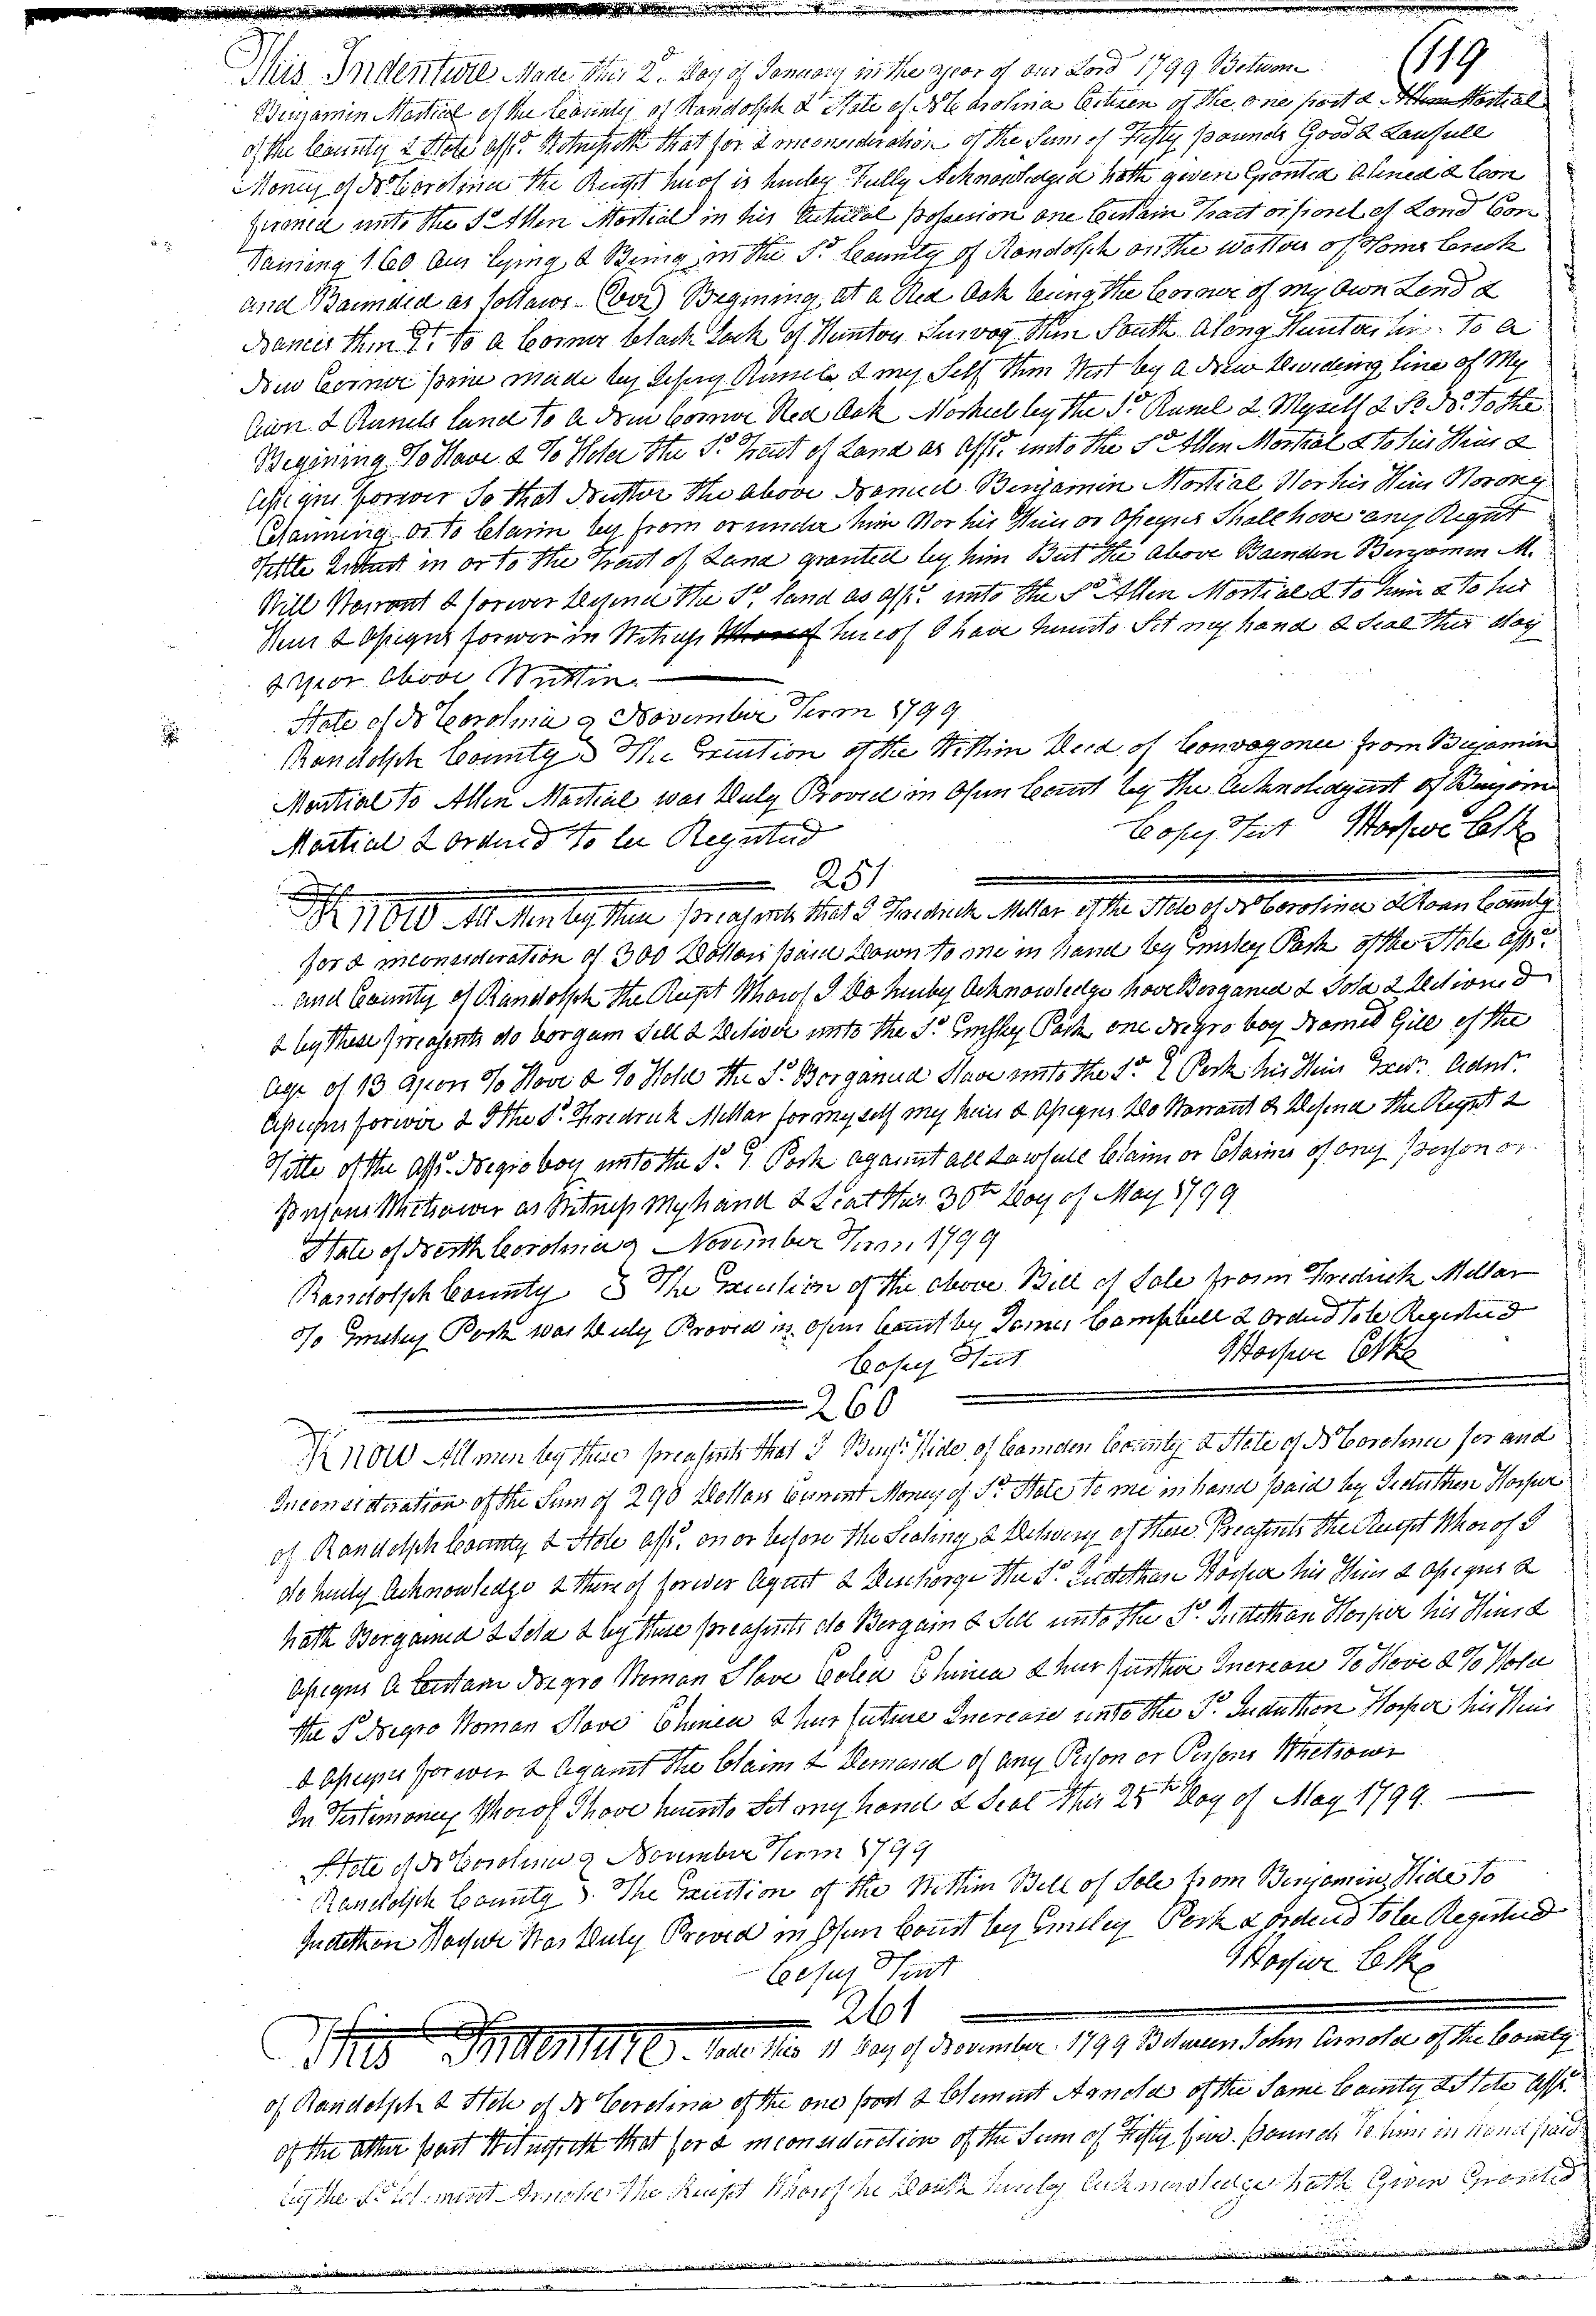 (119
This Indenture Made this 2d. Day of January in the year of our Lord 1799 Between
Benjamin Martial of the County of Randolph & State of No Carolina Citizen of the one part & Allen Martial
of the County & State affd. Witnesseth that for & inconsideration of the Sum of Fifty pounds Good & Lawfull
Money of No. Carolina the Recept hereof is hereby Fully Acknowledged hath given Granted aliened & Con
firmed unto the Sd Allen Martial in his actual possession one Certain Tract or parcel of Land Con
taining 160 Acers lying & Being in the Sd. County of Randolph on the Watters of Toms Creek
and Bounded as follows (Viz) Begining at a Red Oak being the Corner of my Own Land &
Nances then Et. to a Corner black Jack of Huntors Survay then South along Huntors line to a
New Corner pine made by Jesery Runels & my Self then West by a New Devideing line of My
Own & Runels land to a New Corner Red Oak Marked by the Sd. Runel & Myself & So No. to the
Begining To Have & To Hold the Sd. Tract of Land as affd. unto the Sd Allen Martial & to his Heirs &
Assigns forever So that Neither the above Named Benjamin Martial Nor his Heirs Nor any
Claiming or to Claim by from or under him Nor his Heirs or Assigns Shall have any Right
Tittle Intrest in or to the Tract of Land granted by him But the above Bounden Benjamin M.
Will Warrant & forever Defend the Sd. land as affd. unto the Sd Allen Martial & to him & to his
Heirs & Assigns forever in Witness Whereof hereof I have hereunto Set my hand & Seal this day
& year above Written.
State of No Carolina } November Term 1799
Randolph County } The Exicution of the Within Deed of Convayance from Benjamin
Martial to Allen Martial was Duly Proved in Open Court by the Acknoledgent of Benjamin
Martial & ordered to be Registred
Copy Test Harper Clk
251
Know All Men by these preasents that I Fredrick Millar of the State of No Carolina & Roan County
for & inconsideration of 300 Dollars paid Down to me in hand by Emsley Pork of the State affd.
and County of Randolph the Recept Wharof I Do hereby Acknowledge have Bargained & Sold & Delivered
& by these preasents do bargain Sell & Deliver unto the Sd. Emsley Pork one Negro boy Named Gill of the
age of 13 years To Have & To Hold the Sd. Barganed Slave unto the Sd. E Pork his Heirs Exers. Admrs.
Assigns forever & I the Sd. Fredrick Millar for my self my heirs & Assigns Do Warrant & Defend the Right &
Title of the affd. Negro boy unto the Sd. E Pork against all Lawfull Claim or Claims of any person or
persons Whatsower as Witness My hand & Seal this 30th Day of May 1799
State of North Carolina } November Term 1799
Randolph County } The Exicution of the above Bill of Sale from Fredrick Millar
To Emsley Pork was Duly Proved in open Court by James Campbell & ordred to be Registred
Copy Test Harper Clk
260
Know All men by these preasents that I Benjn. Hide of Camden County & State of No Carolina for and
Inconsideration of the Sum of 290 Dollars Current Money of Sd. State to me in hand paid by Jeduthan Harper
of Randolph County & State affd. on or before the Sealing & Delivery of these Preasents the Recept Wharof I
do hereby Acknowledge & there of forever Aquit & Discharge the Sd. Judethan Harper his Heirs & Assigns &
hath Bargained & Sold & by these preasents do Bargain & Sell unto the Sd. Judethan Harper his Heirs &
Assigns A Certain Negro Woman Slave Coled Chinea & hur further Increase To Have & To Hold
the Sd Negro Woman Slave Chinea & hur future Increase unto the Sd. Juduthan Harper his Heirs
& Assigns forever & against the Claim & Demand of any Person or Persons Whatsower
In Testimoney Wharof I have hereunto Set my hand & Seal this 25th Day of May 1799.
State of No Carolina } November Term 1799
Randolph County } The Exicution of the Within Bill of Sale from Benjamin Hide to
Judethan Harper Was Duly Proved in Open Court by Emsley Pork & ordered to be Registred
Copy Test Harper Clk
261
This Indenture Made this 11 Day of November 1799 Between John Arnold of the County
of Randolph & State of No Carolina of the one part & Clement Arnold of the Same County & State affd.
of the other part Witnesseth that for & inconsideration of the Sum of Fifty five pounds To him in hand paid
by the Sd Clement Arnold the Recept Wharof he Doath hereby Acknowledge hath Given Granted